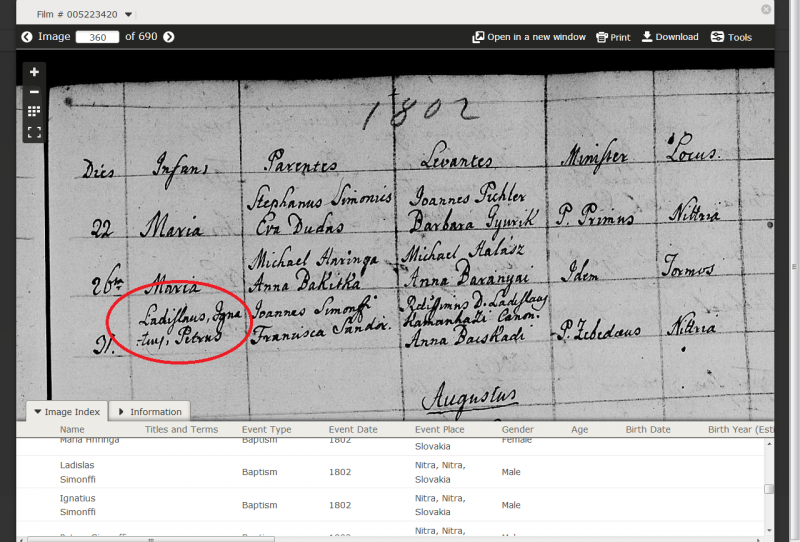 Film # 005223420
Image 360 of 690
Open in a new window Print Download Tools
1802
Dies Infans Parentes Levantes Minister Locus.
Stephanus Simonics Joannes Pichler
22 Maria Eva Dudas Barbara Gyurik P. Primus Nittria
Michael Haringa Michael Halasz
26 Maria Anna Bakitka Anna Baranyai Idem Tormos
Ladislaus, Igna Joannes Simonffi D. Ladislaus
-tius, Petrus Francisca Sandor. Kamanhazi Canon. P. Zebedaeus Nittria
31. Anna Bacskadi
Augustus
Image Index Information
Name Titles and Terms Event Type Event Date Event Place Gender Age Birth Date Birth Year (Esti
Maria Hnringa Baptism 1802 Slovakia Female
Ladislas Simonffi Baptism 1802 Nitra, Nitra, Slovakia Male
Ignatius Simonffi Baptism 1802 Nitra, Nitra, Slovakia Male
Nitra, Nitra,